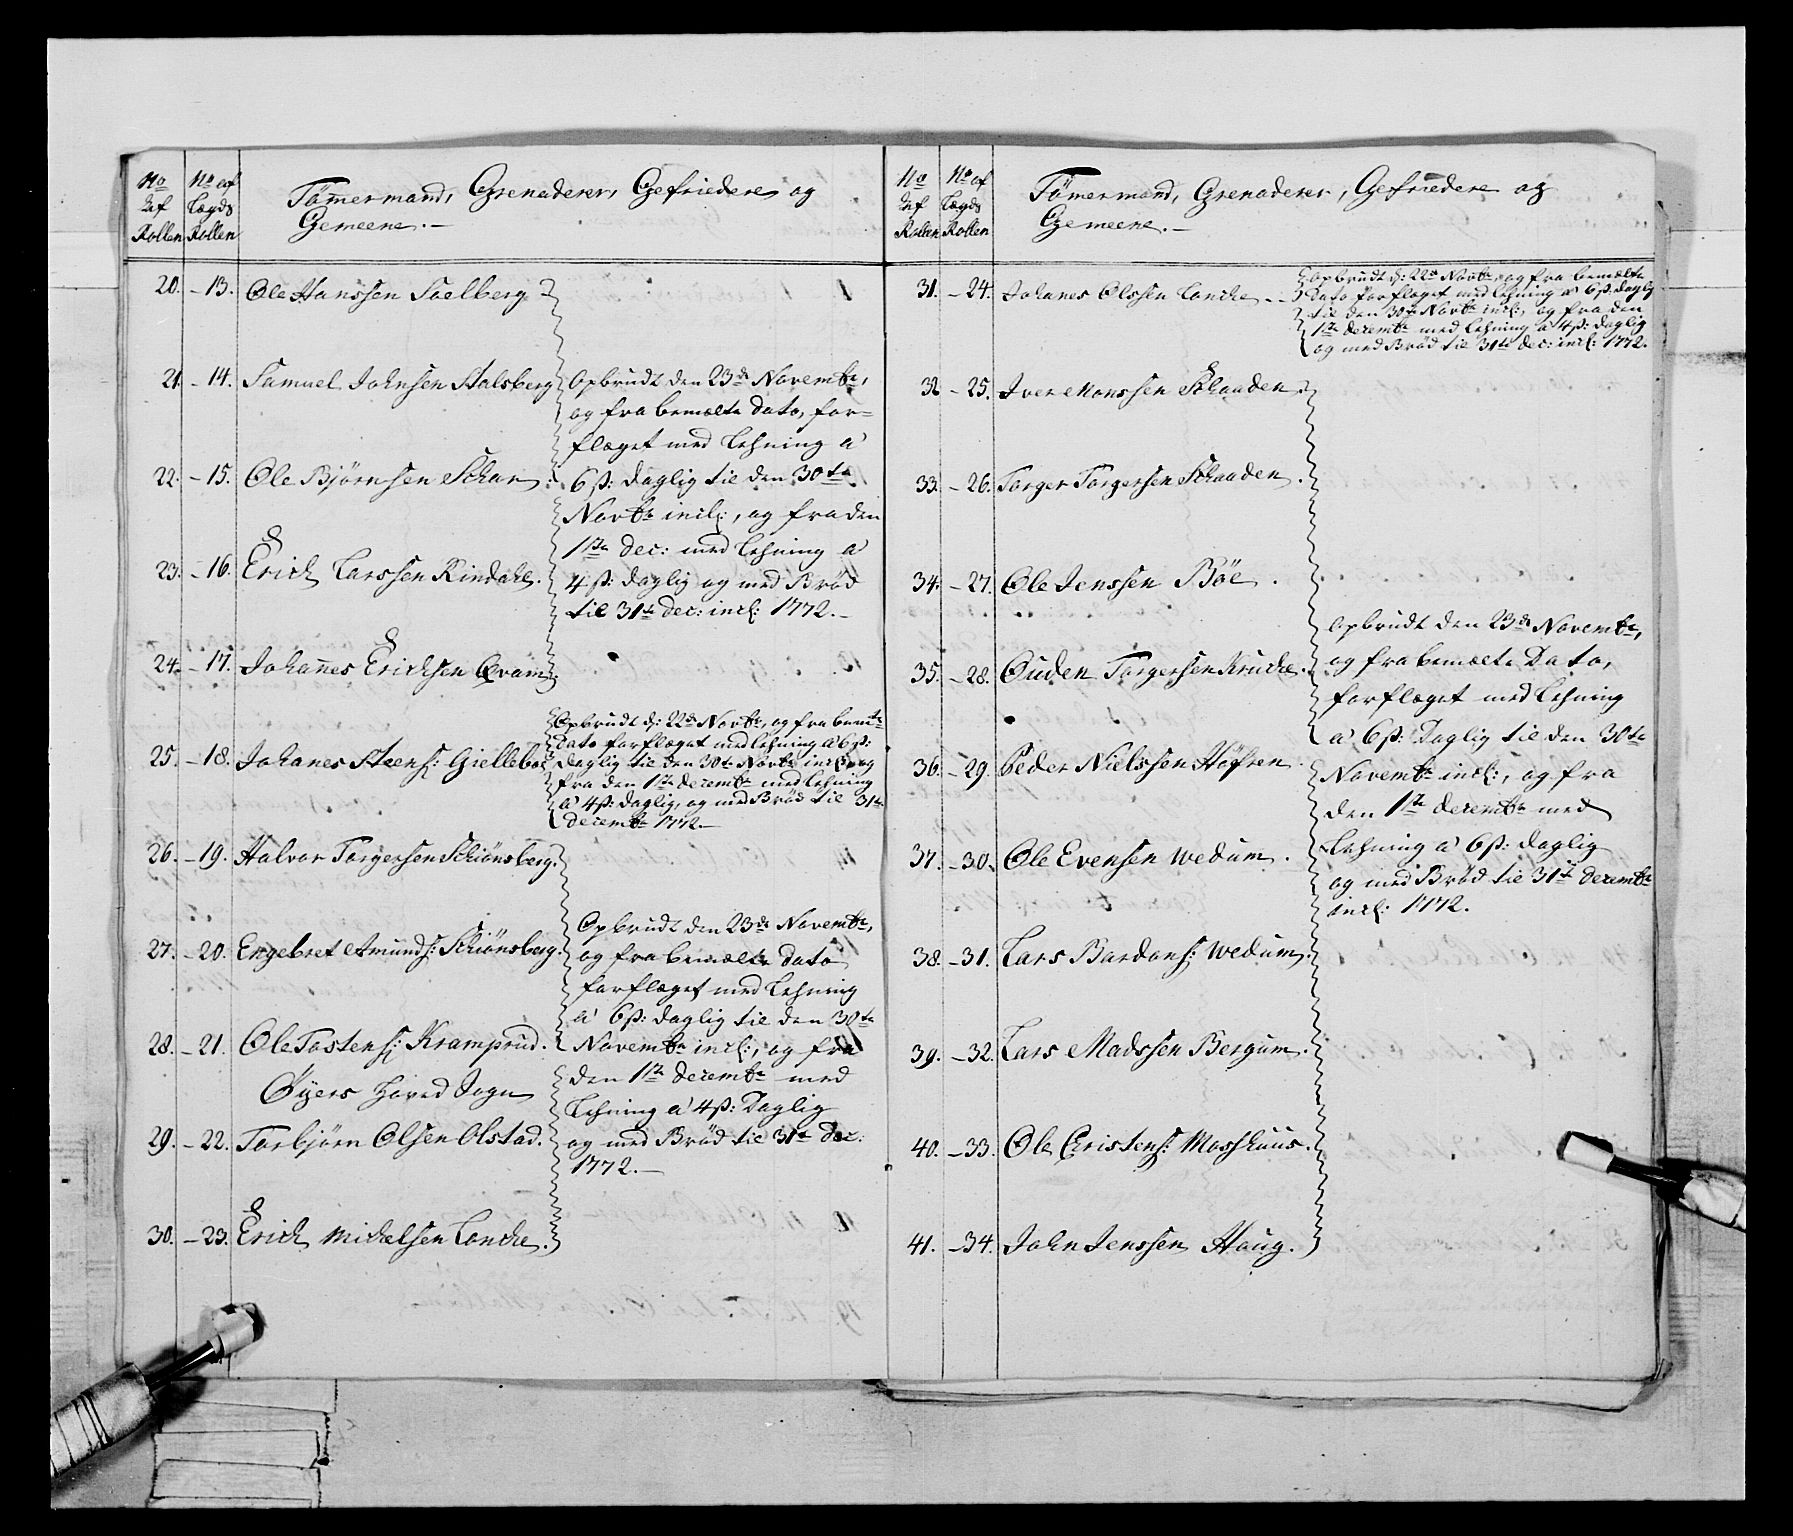 No af Rollen
No af Lægds Rollen
Tömermænd, Grenaderer, Gefriedere og
Gemeene.
20. - 13. Ole Hanssen Soelberg
21. - 14. Samuel Johnsen Stalsberg
22. - 15. Ole Bjørnsen Schar
23. - 16. Erich Larssen Rindahl.
24. - 17. Johannes Erichsen Qvam
Opbrudt den 23de Novembr,
og fra bemælte Dato, for-
flæget med Lehning a
6 ß: daglig til den 30te
Novbr incl:, og fra den
1ste Dec: med Lehning a
4 ß: daglig og med Brød
til 31te Dec: incl: 1772.
25. - 18. Johanes Steens: Giellebøe
Opbrudt d: 22de Novbr, og fra bemte
Dato forflæget med Lehning a 6 ß:
daglig til den 30te Novbr incl: og
fra den 1ste Decembr med Lehning
a 4 ß: daglig, og med Brød til 31te
Decembr 1772.
26. - 19. Halvor Torgersen Schiønsberg.
27. - 20. Engebret Amunds: Schiønsberg.
28. - 21. Ole Tostens: Kramprud.
Øÿers Hoved Sogn
29. - 22. Torbjørn Olsen Olstad.
30. - 23. Erich Michelsen Lonche.
Opbrudt den 23de Novembr,
og fra bemælte Dato
forflæget med Lehning
a 6 ß: daglig til den 30te
Novembr incl:, og fra
den 1ste Decembr med
Lehning a 4 ß: Daglig
og med Brød til 31te Dec:
1772.
No af Rollen
No af Lægds Rollen
Tömermænd, Grenaderer, Gefriedere og
Gemeene.
31. - 24. Johanes Olssen Lonche
Opbrudt d: 22de Novbr, og fra bemælte
Dato forflæget med Lehning a 6 ß: daglig
til den 30te Novbr incl:, og fra den
1ste Decembr med Lehning a 4 ß: daglig
og med Brød til 31te Dec: incl: 1772.
32 - 25. Iver Monssen Schaaden
33. - 26. Torger Torgersen Schaaden.
34. - 27. Ole Jenssen Bøe.
35. - 28. Ouden Torgersen Kruche.
36. - 29. Peder Nielssen Høfren
37. - 30. Ole Evensen Wedum.
38. - 31. Lars Bardons: Wedum.
39. - 32. Lars Madssen Bergum.
40. - 33. Ole Christens: Moshuus.
41. - 34. John Jenssen Haug.
Opbrudt den 23de Novembr,
og fra bemælte Dato,
forflæget med Lehning
a 6 ß: Daglig til den 30te
Novembr incl:, og fra
den 1ste Decembr med
Lehning a 6 ß: daglig
og med Brød til 31te Decembr
incl: 1772.